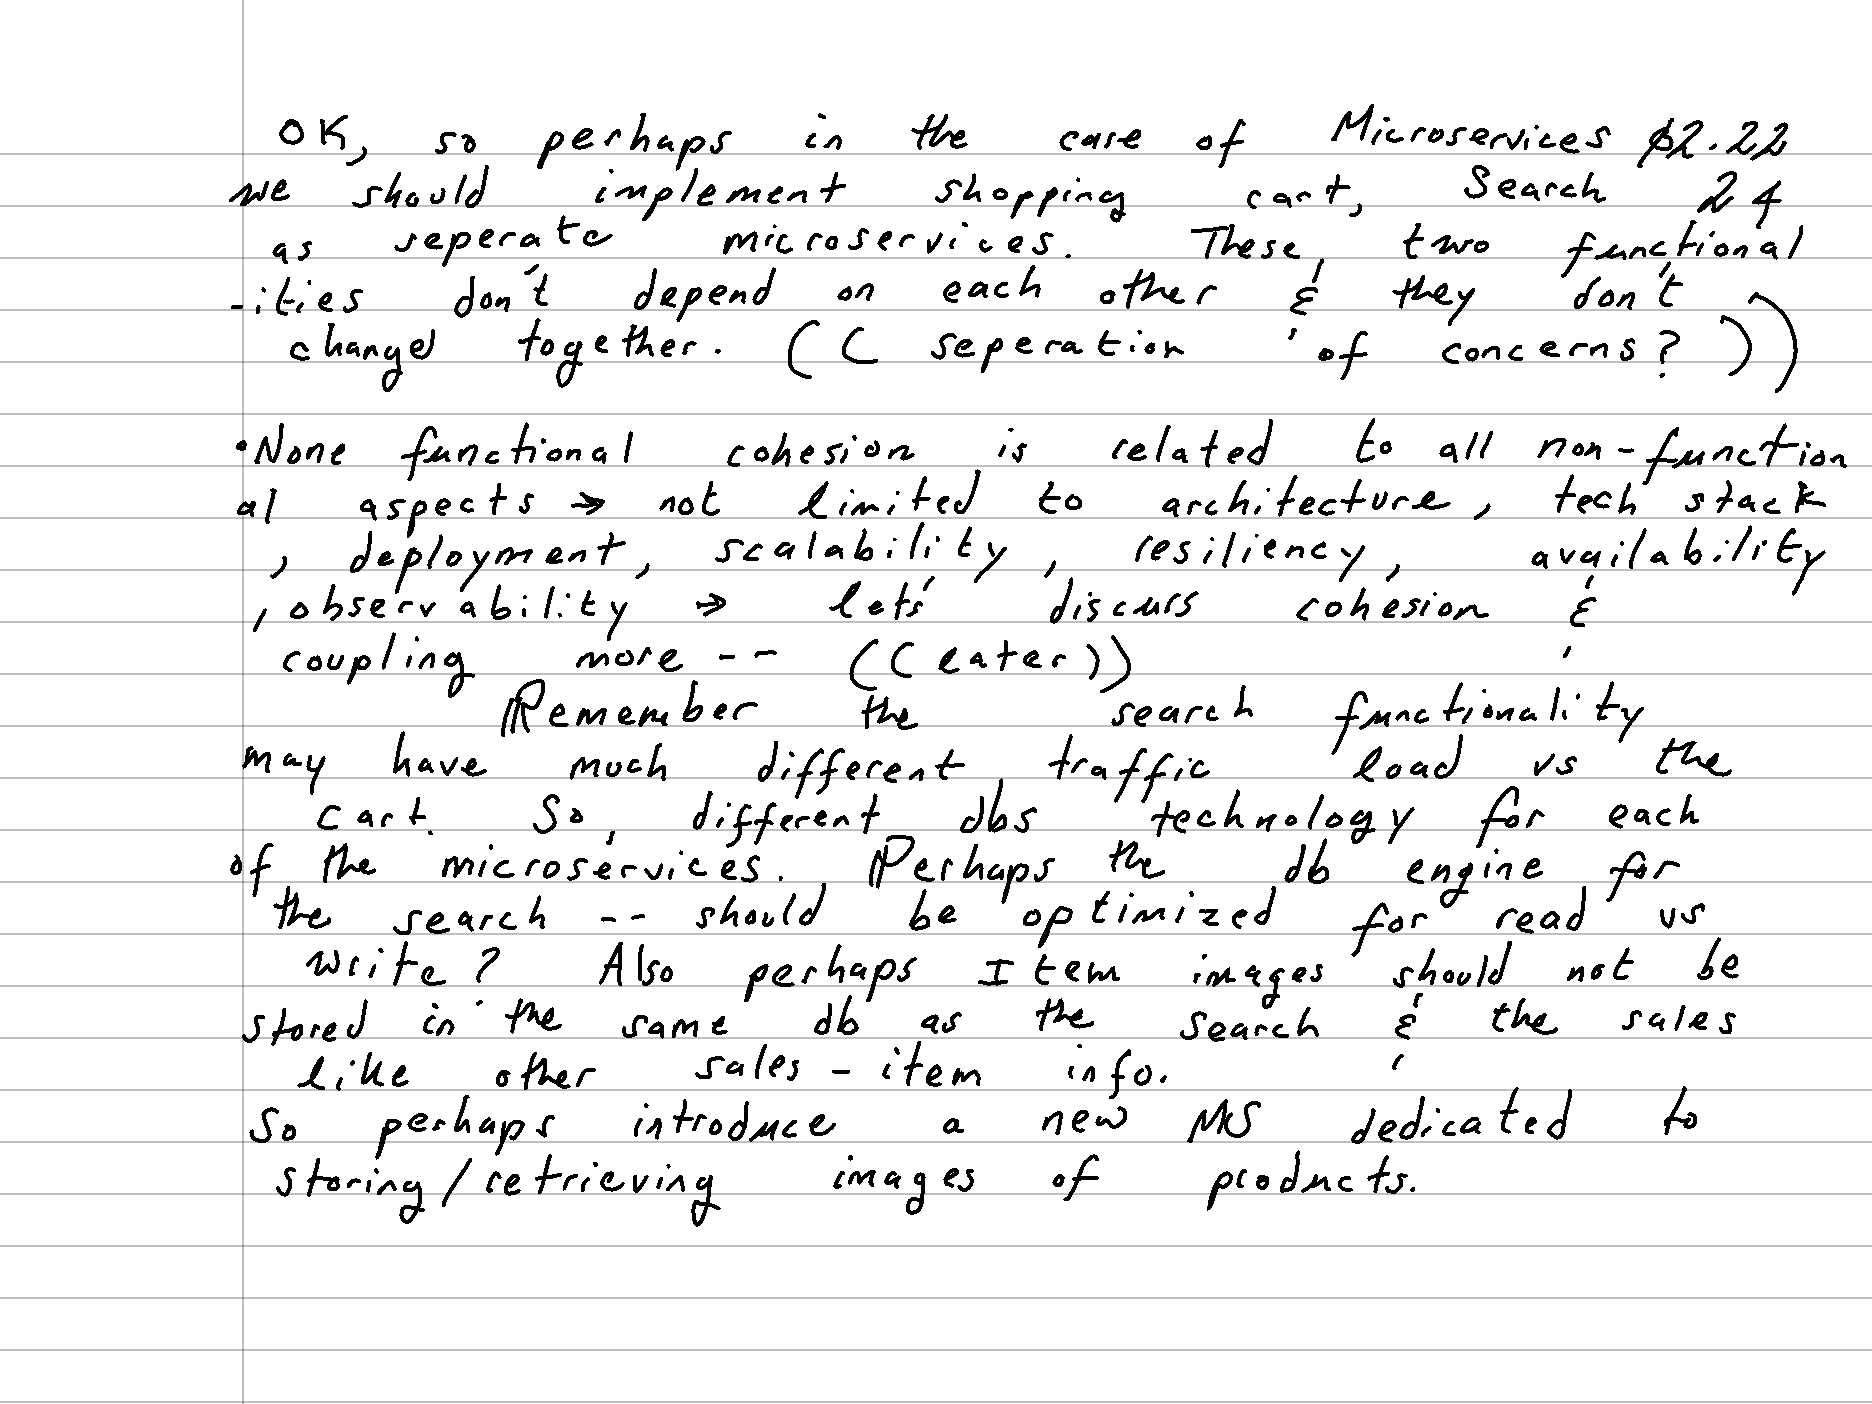 OK, so perhaps in the case of Microservices $2.22
we should implement shopping cart, Search 24
as seperate microservices. These two functional
-ities don't depend on each other & they don't
change together. (( seperation of concerns? ))
•None functional cohesion is related to all non-function
al aspects → not limited to architecture, tech stack
, deployment, scalability, resiliency, availability
, observability → lets' discuss cohesion &
coupling more -- ((later))
Remember the search functionality
may have much different traffic load vs the
cart. So, different dbs technology for each
of the microservices. Perhaps the db engine for
the search -- should be optimized for read vs
write? Also perhaps Item images should not be
stored in the same db as the search & the sales
like other sales-item info.
So perhaps introduce a new MS dedicated to
storing/retrieving images of products.